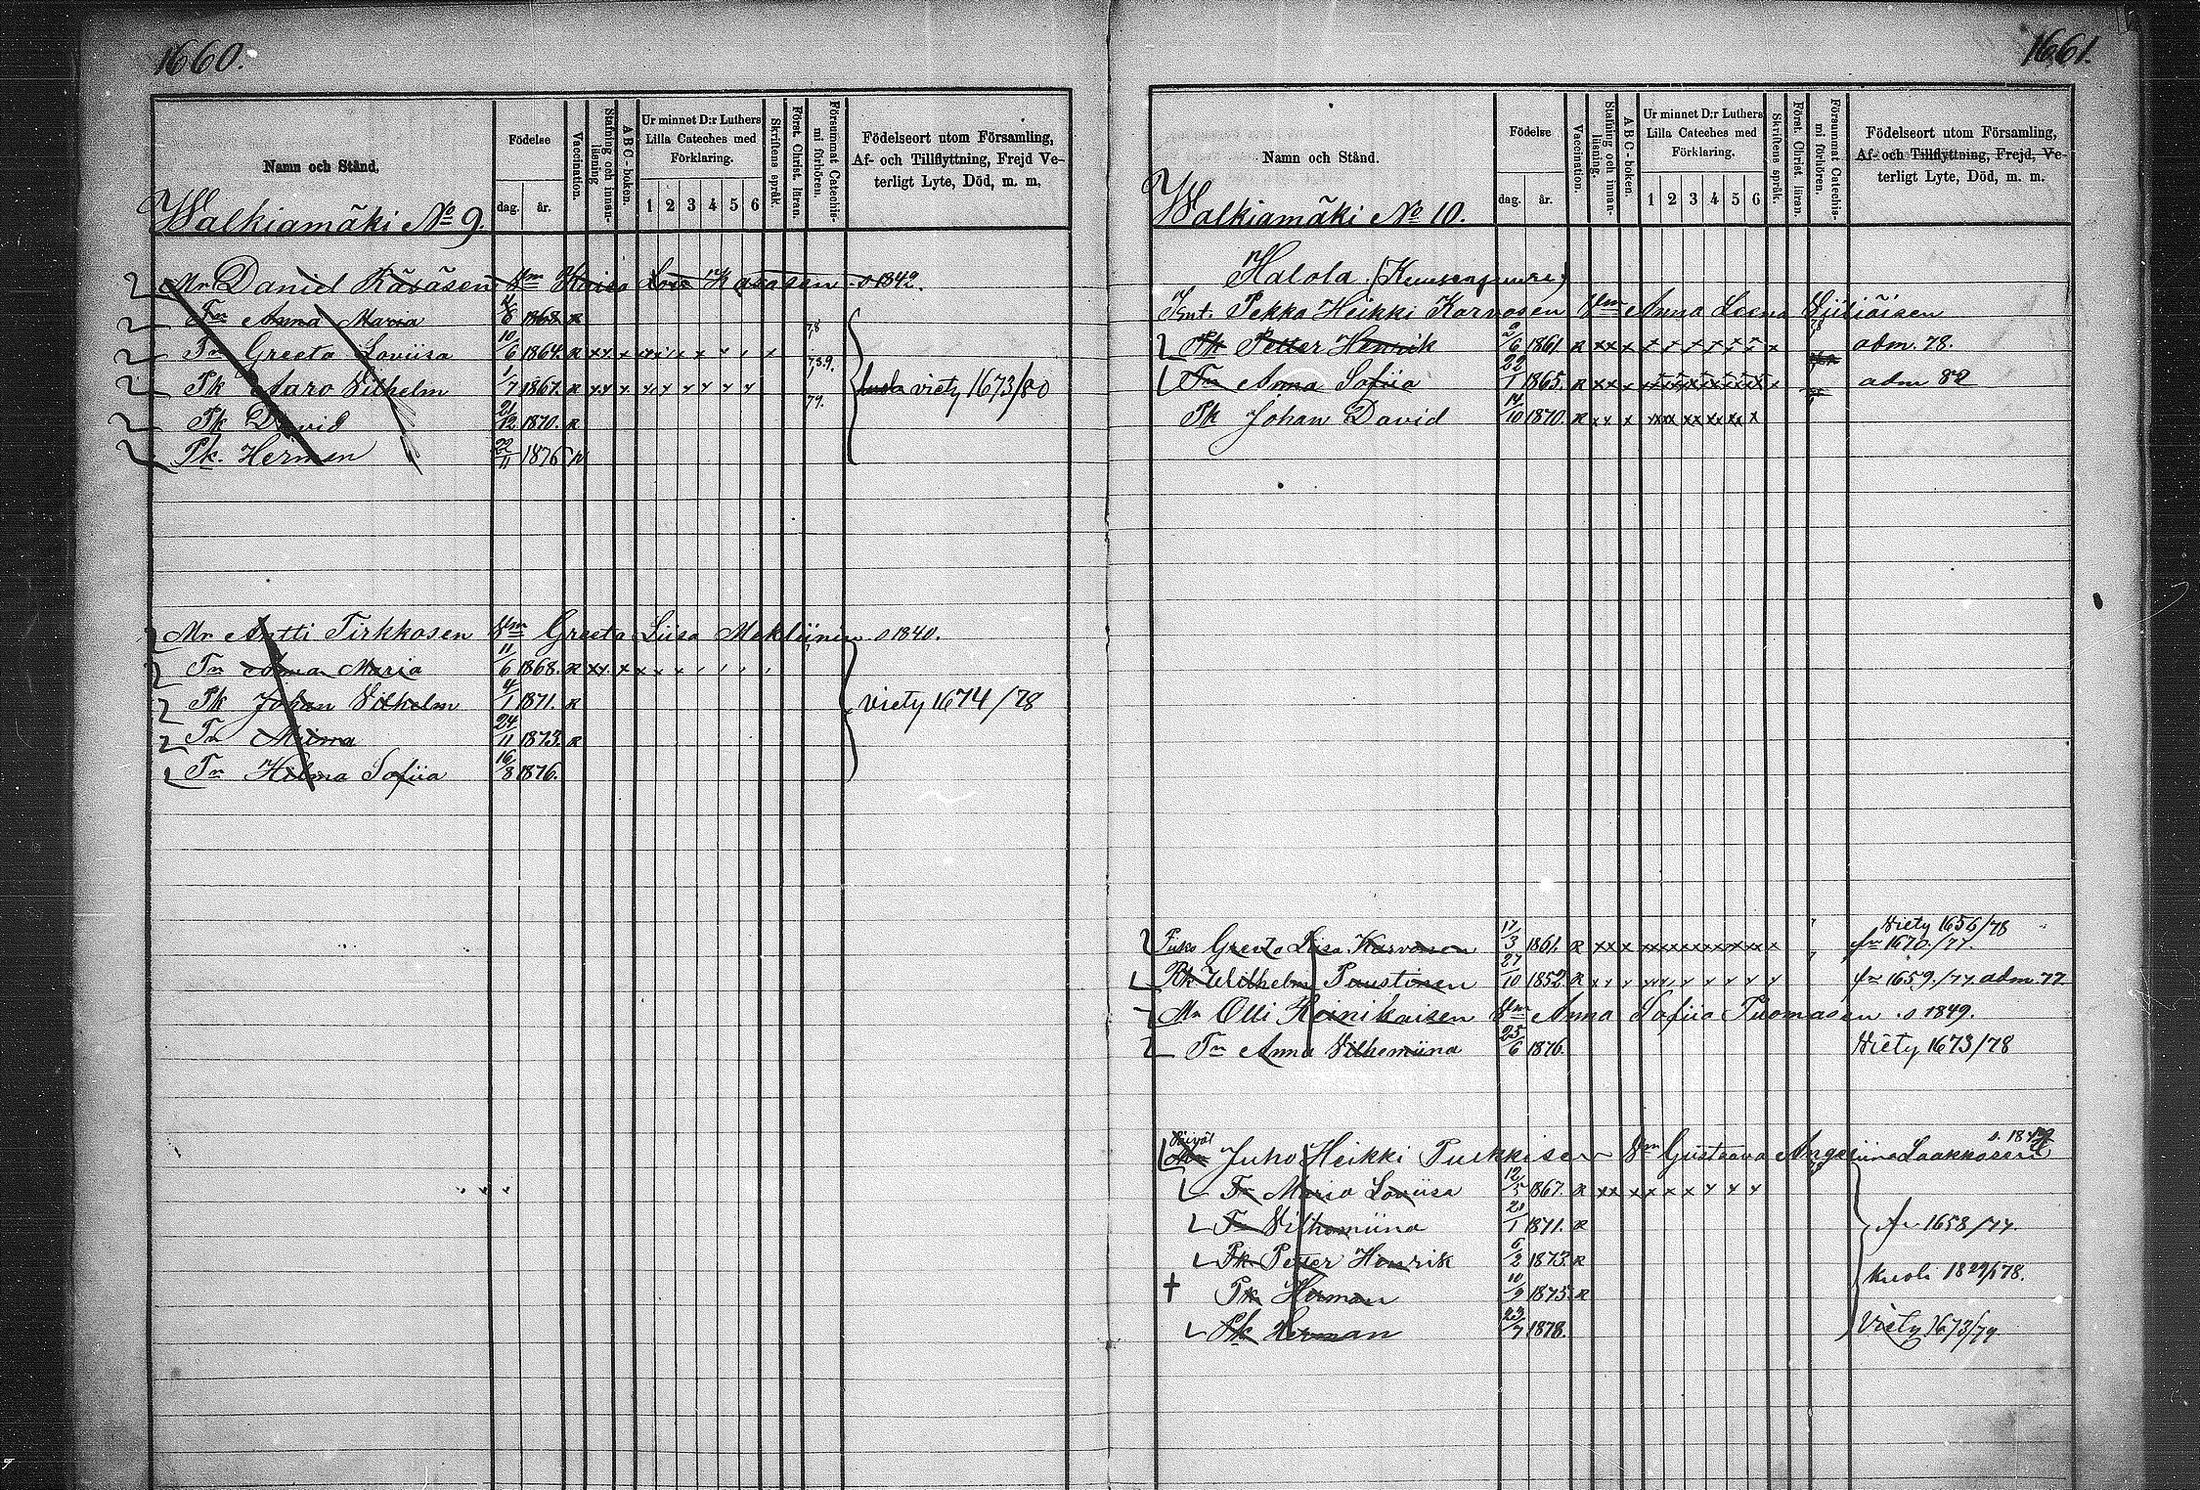 1660.
Namn och Stånd.
Födelse
dag. år.
Vaccination.
Stafning och innan-läsning
ABC-boken.
Ur minnet D:r Luthers
Lilla Cateches med
Förklaring.
1 2 3 4 5 6
Skriftens språk.
Först. Christ. läran.
Försummat Catechis-mi förhören.
Födelseort utom Församling,
Af- och Tillflyttning, Frejd Ve-
terligt Lyte, Död, m. m.
Walkiamäki No 9.
Mr Daniel Räsäsen Vm Kaisa Lovisa s 1842.
Tr Anna Maria 1868 R
Tr Greeta Loviisa 10/6 1864. R x x x x x x x 78
Pk Aaro Vilhelm 1/7 1867. R x x x x x x x x x 78.9.
viety 1673/80
Pk David 21/12 1870. R 79.
Pk. Herman 22/11 1876 R
Mr Antti Tirkkosen Vm Greeta Liisa s 1840.
Tr Anna Maria 11/6 1868. R x x x x x x
Pk Johan Vilhelm 4/1 1871. R
viety 1674/78
Tr Miina 24/11 1873. R
Tr Helma Sofiia 16/8 1876.
1661.
Namn och Stånd.
Födelse
dag. år.
Vaccination.
Stafning och innan-läsning.
ABC-boken.
Ur minnet D:r Luthers
Lilla Cateches med
Förklaring.
1 2 3 4 5 6
Skriftens språk.
Först. Christ. läran.
Försummat Catechis-mi förhören.
Födelseort utom Församling,
Af- och Tillflyttning, Frejd, Ve-
terligt Lyte, Död, m. m.
Walkiamäki No 10.
Halola
Pekka Heikki Karvosen Vm Anna Leena
Pk Petter Henrik 2/6 1861 R x x x x x x x x x x adm. 78.
Tr Anna Sofiia 22/1 1865. R x x x adm 82
Pk Johan David 14/10 1870. R x x x
Greeta Liisa Karvonen 17/3 1861. R x x x
Viety 1656/78
fr 1670/77.
Pk Wilhelm Puustinen 27/10 1852. R x x x fr 1659./77. adm. 77.
Mr Olli Heinikaisen Vm Anna Sofiia Tuomasen s 1849.
Tr Anna Vilhemiina 25/6 1876. Viety 1673/78
Juho Heikki Purkkisen Vm Gustaava Laakkosen
Tr Maria Loviisa 12/5 1867. R x x x x x x x x x
Tr Vilhemiina 21/1 1871. R fr 1658/77.
Pk Petter Henrik 6/2 1873. R
Pk Herman 10/9 1875. R kuoli 18 29/1 78.
Pk Herman 23/7 1878. Viety 1673/79